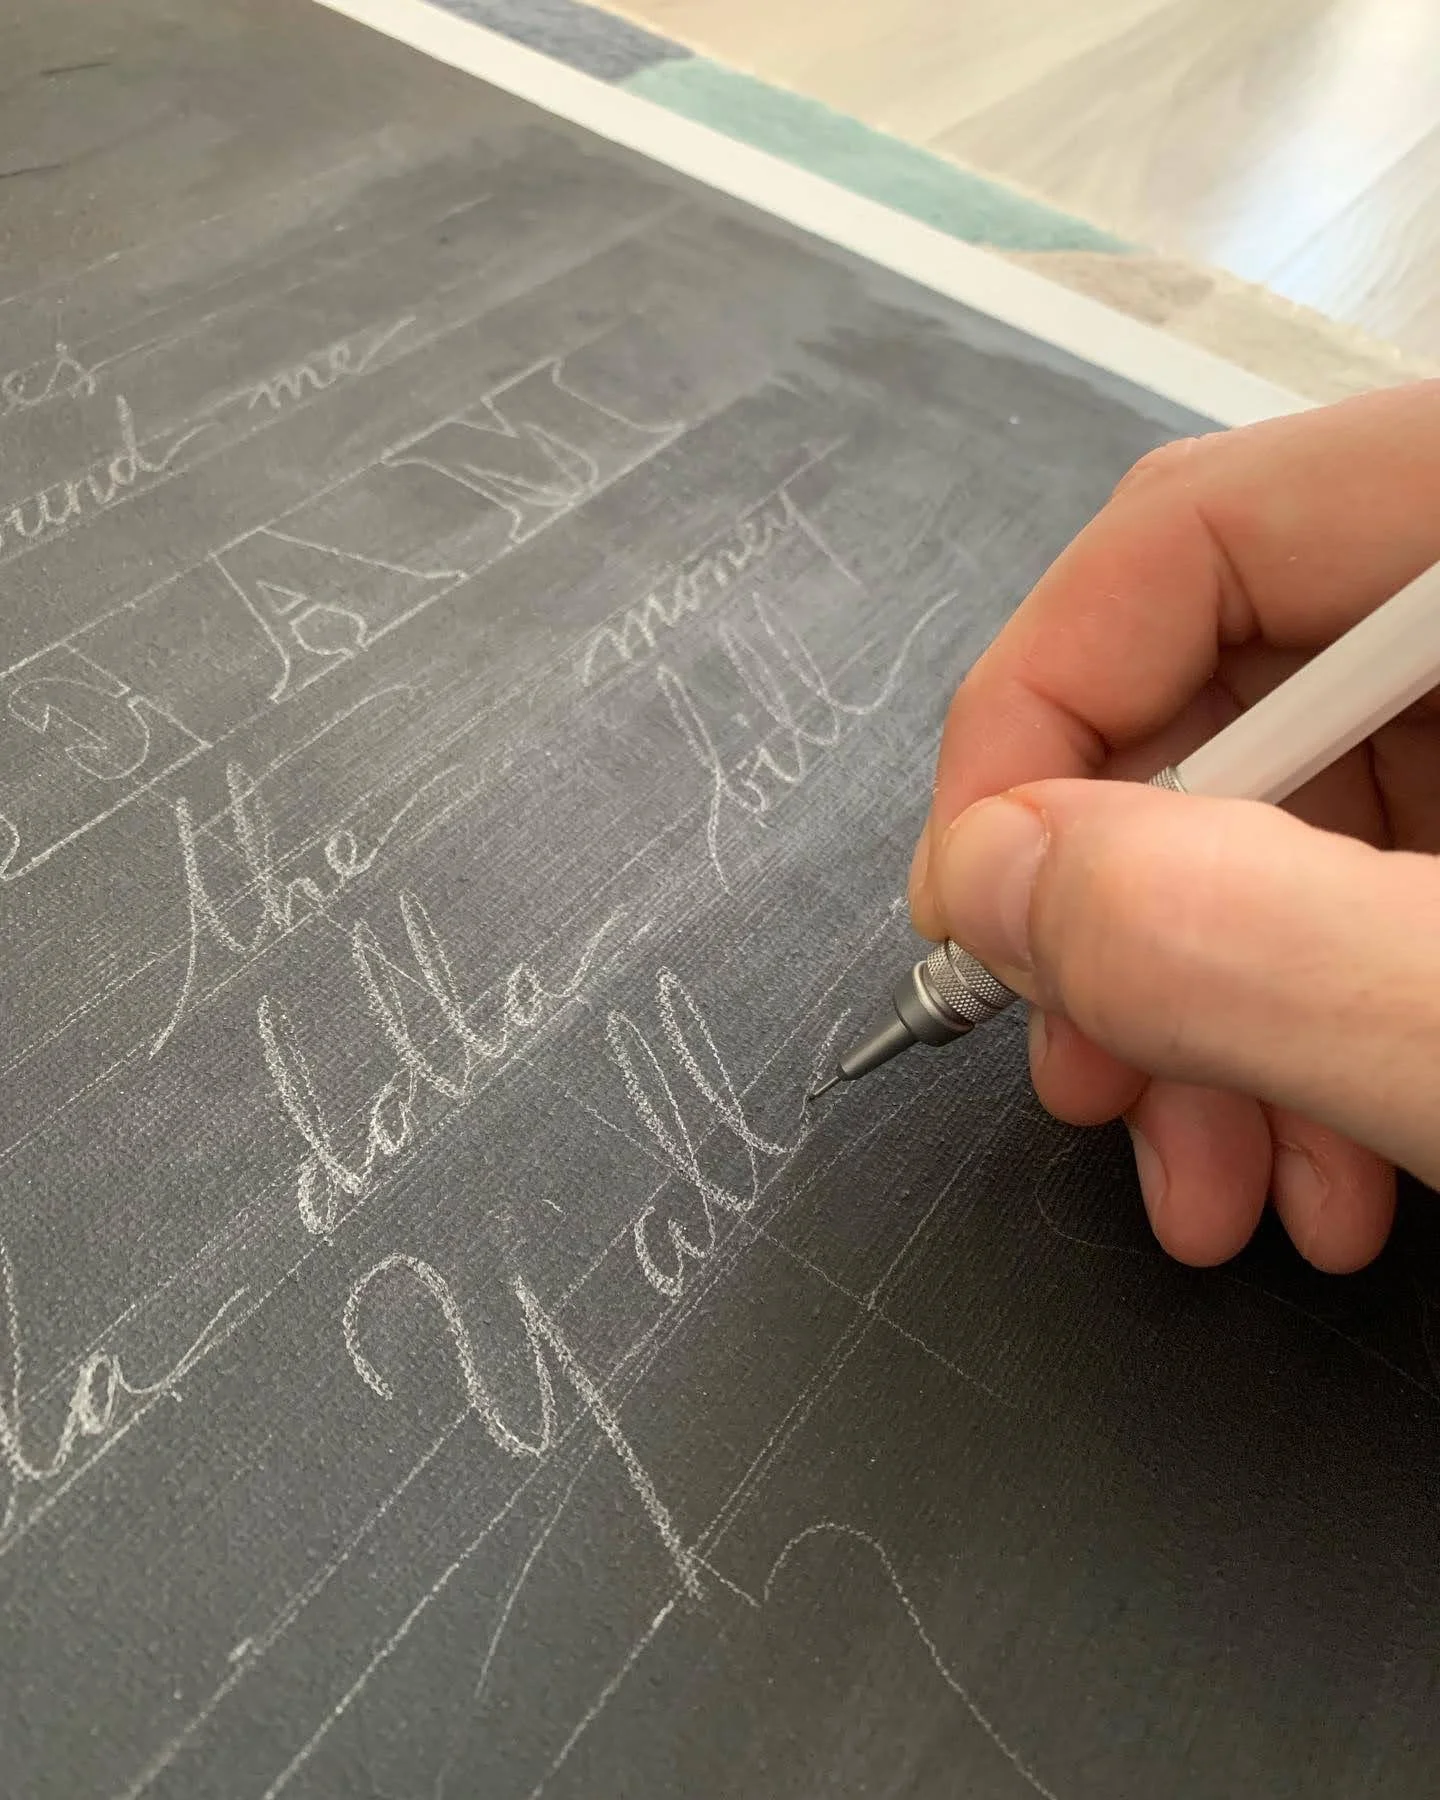 es
ound me
EAM
the money
lla dolla bill
y'all